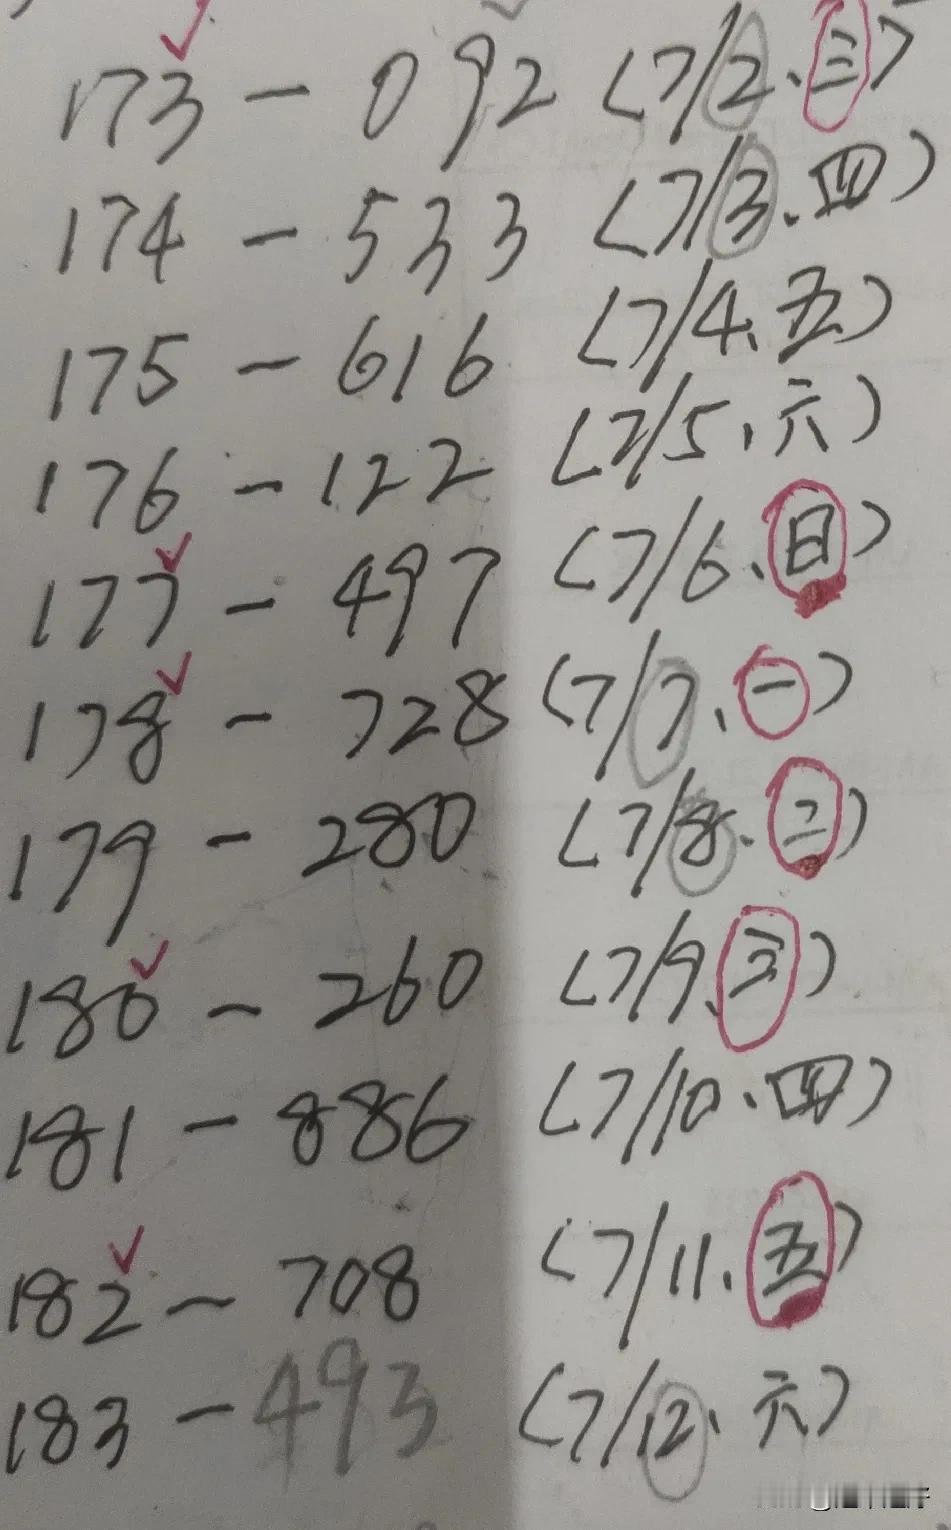 173 - 092 (7/2、三)
174 - 533 (7/3、四)
175 - 616 (7/4、五)
176 - 122 (7/5、六)
177 - 497 (7/6、日)
178 - 728 (7/7、一)
179 - 280 (7/8、二)
180 - 260 (7/9、三)
181 - 886 (7/10、四)
182 - 708 (7/11、五)
183 - 493 (7/12、六)